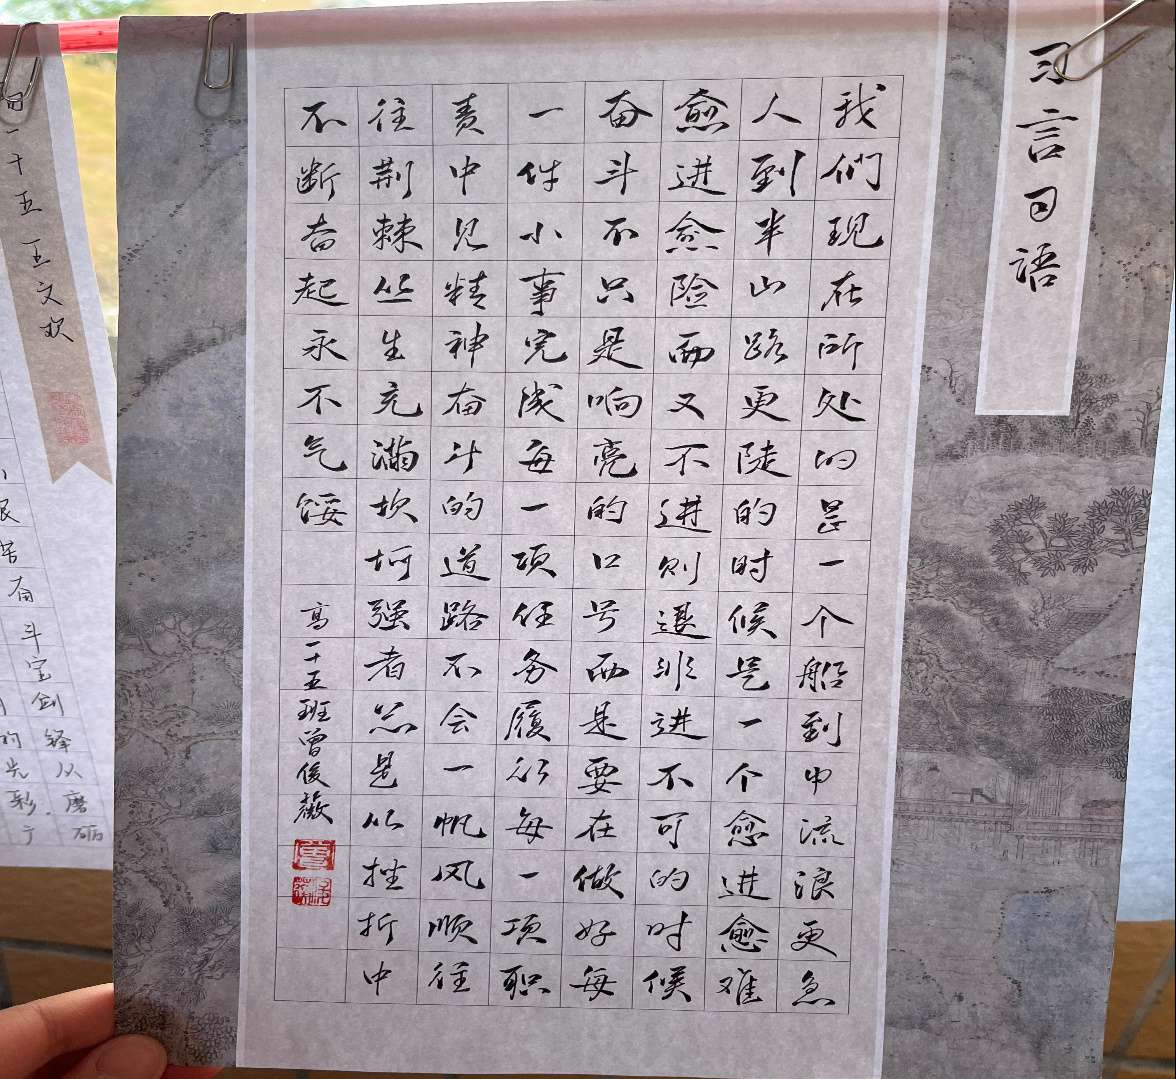 习言习语
我們现在所处的是一个船到中流浪更急
人到半山路更陡的时候是一个愈进愈难
愈进愈险而又不进则退非进不可的时候
奋斗不只是响亮的口号而是要在做好每
一件小事完成每一项任务履行每一项职
责中见精神奋斗的道路不会一帆风顺往
往荆棘丛生充满坎坷强者总是从挫折中
不断奋起永不气馁
高一十五班曾俊薇
一十五王文欢
苦奋斗宝剑锋从磨砺
的光彩.